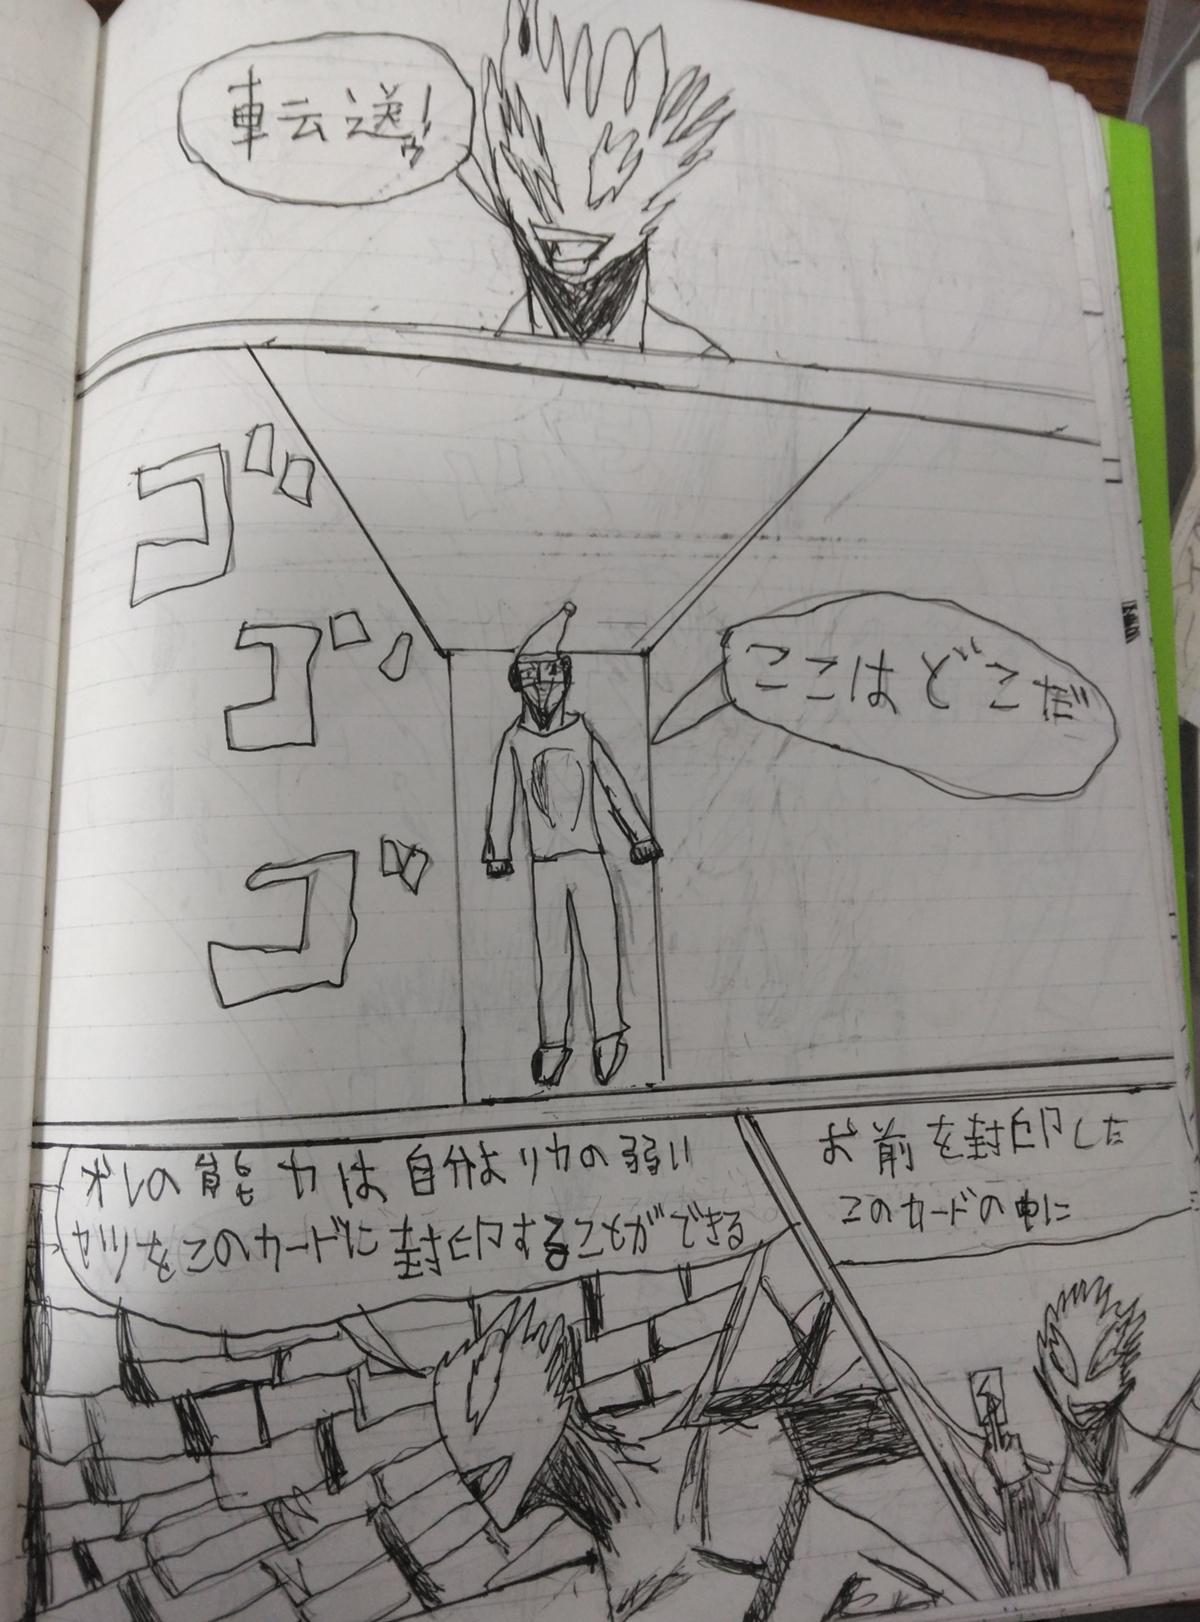 転送!
ゴ
ゴ
ゴ
ここはどこだ
お前を封印した
このカードの中に
オレの能力は自分より力の弱い
ヤツをこのカードに封印することができる